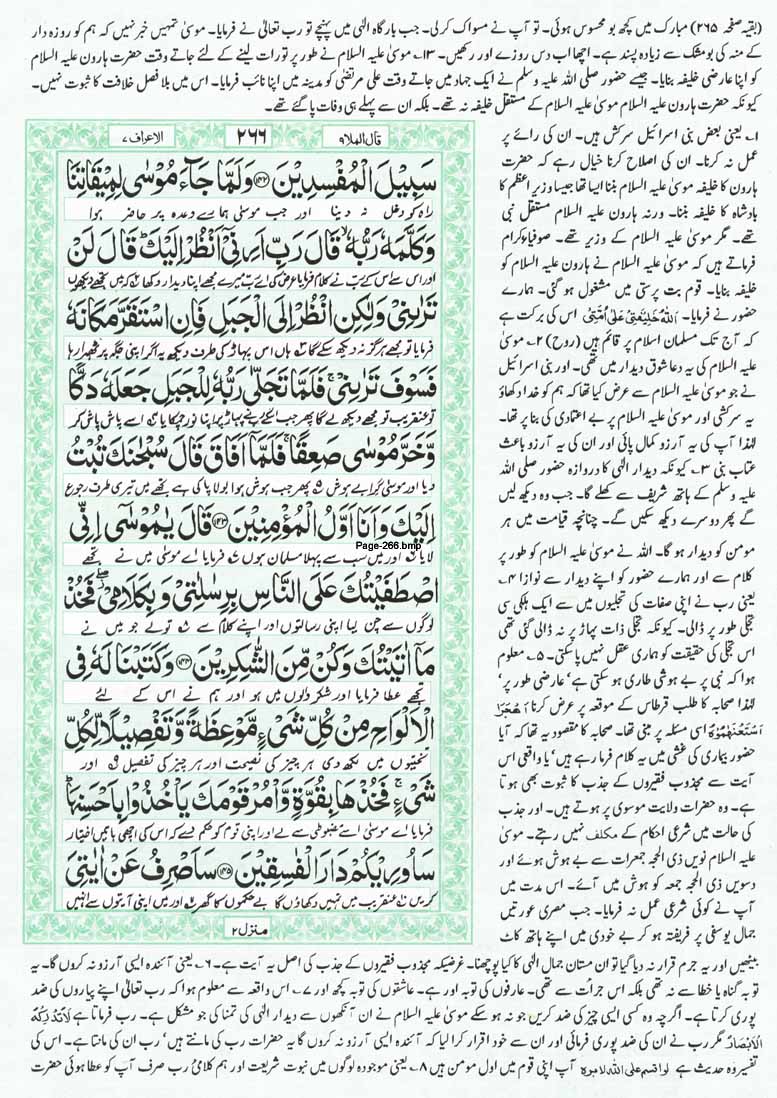 (بقیہ صفحہ ۲۶۵) مبارک میں کچھ بو محسوس ہوئی۔ تو آپ نے مسواک کرلی۔ جب بارگاہ الٰہی میں پہنچے تو رب تعالٰی نے فرمایا۔ موسیٰ تمہیں خبر نہیں کہ ہم کو روزہ دار
کے منہ کی بو مشک سے زیادہ پسند ہے۔ اچھا اب دس روزے اور رکھیں۔ ۱۳۔ موسیٰ علیہ السلام نے طور پر تورات لینے کے لئے جاتے وقت حضرت ہارون علیہ السلام
کو اپنا عارضی خلیفہ بنایا۔ جیسے حضور صلی اللہ علیہ وسلم نے ایک جہاد میں جاتے وقت علی مرتضیٰ کو مدینہ میں اپنا نائب فرمایا۔ اس میں بلا فصل خلافت کا ثبوت نہیں۔
کیونکہ حضرت ہارون علیہ السلام موسیٰ علیہ السلام کے مستقل خلیفہ نہ تھے۔ بلکہ ان سے پہلے ہی وفات پا گئے تھے۔
قال الملا ۹ ۲۶۶ الاعراف ۷
سَبِيلَ الْمُفْسِدِينَ ﴿۱۴۲﴾ وَلَمَّا جَآءَ مُوسٰى لِمِيقَاتِنَا
راہ کو دخل نہ دینا اور جب موسیٰ ہمارے وعدہ پر حاضر ہوا
وَكَلَّمَهٗ رَبُّهٗ ۙ قَالَ رَبِّ اَرِنِيٓ اَنْظُرْ اِلَيْكَ ؕ قَالَ لَنْ
اور اس سے اس کے رب نے کلام فرمایا عرض کی اے رب میرے مجھے اپنا دیدار دکھا کہ میں تجھے دیکھوں
تَرٰىنِيْ وَلٰكِنِ انْظُرْ اِلَى الْجَبَلِ فَاِنِ اسْتَقَرَّ مَكَانَهٗ
فرمایا تو مجھے ہرگز نہ دیکھ سکے گا ہاں اس پہاڑ کی طرف دیکھ یہ اگر اپنی جگہ پر ٹھہرا رہا
فَسَوْفَ تَرٰىنِيْ ۚ فَلَمَّا تَجَلّٰى رَبُّهٗ لِلْجَبَلِ جَعَلَهٗ دَكًّا
تو عنقریب تو مجھے دیکھ لے گا پھر جب اسکے رب نے پہاڑ پر اپنا نور چمکایا اسے پاش پاش کر
وَّخَرَّ مُوْسٰى صَعِقًا ۚ فَلَمَّآ اَفَاقَ قَالَ سُبْحٰنَكَ تُبْتُ
دیا اور موسیٰ گرا بے ہوش پھر جب ہوش ہوا بولا پاکی ہے تجھے میں تیری طرف رجوع
اِلَيْكَ وَاَنَا اَوَّلُ الْمُؤْمِنِيْنَ ﴿۱۴۳﴾ قَالَ يٰمُوْسٰٓى اِنِّي
لایا اور میں سب سے پہلا مسلمان ہوں فرمایا اے موسیٰ میں نے تجھے
Page-266.bmp
اصْطَفَيْتُكَ عَلَى النَّاسِ بِرِسٰلٰتِيْ وَبِكَلَامِيْ ۖ فَخُذْ
لوگوں سے چن لیا اپنی رسالتوں اور اپنے کلام سے تو لے جو میں نے
مَآ اٰتَيْتُكَ وَكُنْ مِّنَ الشّٰكِرِيْنَ ﴿۱۴۴﴾ وَكَتَبْنَا لَهٗ فِى
تجھے عطا فرمایا اور شکر والوں میں ہو اور ہم نے اس کے لئے
الْاَلْوَاحِ مِنْ كُلِّ شَيْءٍ مَّوْعِظَةً وَّتَفْصِيْلًا لِّكُلِّ
تختیوں میں لکھ دی ہر چیز کی نصیحت اور ہر چیز کی تفصیل اور
شَيْءٍ ۚ فَخُذْهَا بِقُوَّةٍ وَّاْمُرْ قَوْمَكَ يَاْخُذُوْا بِاَحْسَنِهَا ؕ
فرمایا اے موسیٰ اسے مضبوطی سے لے اور اپنی قوم کو حکم دے کہ اس کی اچھی باتیں اختیار
سَاُورِيْكُمْ دَارَ الْفٰسِقِيْنَ ﴿۱۴۵﴾ سَاَصْرِفُ عَنْ اٰيٰتِيَ
کریں عنقریب میں تمہیں دکھاؤں گا بے حکموں کا گھر اور میں اپنی آیتوں سے انہیں
منزل ۲
۱۔ یعنی بعض بنی اسرائیل سرکش ہیں۔ ان کی رائے پر
عمل نہ کرنا۔ ان کی اصلاح کرنا خیال رہے کہ حضرت
ہارون کا خلیفہ موسیٰ علیہ السلام بننا ایسا تھا جیسا وزیر اعظم کا
بادشاہ کا خلیفہ بننا۔ ورنہ ہارون علیہ السلام مستقل نبی
تھے۔ مگر موسیٰ علیہ السلام کے وزیر تھے۔ صوفیاء کرام
فرماتے ہیں کہ موسیٰ علیہ السلام نے ہارون علیہ السلام کو
خلیفہ بنایا۔ قوم بت پرستی میں مشغول ہو گئی۔ ہمارے
حضور نے فرمایا۔ اَللّٰهُ خَلِيْفَتِيْ عَلٰى اُمَّتِيْ اس کی برکت ہے
کہ آج تک مسلمان اسلام پر قائم ہیں (روح) ۲۔ موسیٰ
علیہ السلام کی یہ دعا شوق دیدار میں تھی۔ اور بنی اسرائیل
نے جو موسیٰ علیہ السلام سے عرض کیا تھا کہ ہم کو خدا دکھاؤ
یہ سرکشی اور موسیٰ علیہ السلام پر بے اعتمادی کی بنا پر تھا۔
لہٰذا آپ کی یہ آرزو کمال پائی اور ان کی یہ آرزو باعث
عتاب بنی ۳۔ کیونکہ دیدار الٰہی کا دروازہ حضور صلی اللہ
علیہ وسلم کے ہاتھ شریف سے کھلے گا۔ جب وہ دیکھ لیں
گے پھر دوسرے دیکھ سکیں گے۔ چنانچہ قیامت میں ہر
مومن کو دیدار ہو گا۔ اللہ نے موسیٰ علیہ السلام کو طور پر
کلام سے اور ہمارے حضور کو اپنے دیدار سے نوازا ۴۔
یعنی رب نے اپنی صفات کی تجلیوں میں سے ایک ہلکی سی
تجلی طور پر ڈالی۔ کیونکہ تجلی ذات پہاڑ پر نہ ڈالی گئی تھی
اس تجلی کی حقیقت کو ہماری عقل نہیں پا سکتی۔ ۵۔ معلوم
ہوا کہ نبی پر بے ہوشی طاری ہو سکتی ہے' عارضی طور پر'
لہٰذا صحابہ کا طلب قرطاس کے موقعہ پر عرض کرنا اَهَجَرَ
اسْتَفْهِمُوْهُ اسی مسئلہ پر مبنی تھا۔ صحابہ کا مقصود یہ تھا کہ آیا
حضور بیماری کی غشی میں یہ کلام فرما رہے ہیں' یا واقعی اس
آیت سے مجذوب فقیروں کے جذب کا ثبوت بھی ہوتا
ہے۔ وہ حضرات ولایت موسوی پر ہوتے ہیں۔ اور جذب
کی حالت میں شرعی احکام کے مکلف نہیں رہتے۔ موسیٰ
علیہ السلام نویں ذی الحجہ جمعرات سے بے ہوش ہوئے اور
دسویں ذی الحجہ جمعہ کو ہوش میں آئے۔ اس مدت میں
آپ نے کوئی شرعی عمل نہ فرمایا۔ جب مصری عورتیں
جمال یوسفی پر فریفتہ ہو کر بے خودی میں اپنے ہاتھ کاٹ
بیٹھیں اور یہ جرم قرار نہ دیا گیا تو ان مستان جمال الٰہی کا کیا پوچھنا۔ غرضیکہ مجذوب فقیروں کے جذب کی اصل یہ آیت ہے۔ ۶۔ یعنی آئندہ ایسی آرزو نہ کروں گا۔ یہ
توبہ گناہ یا خطا سے نہ تھی بلکہ اس جرأت سے تھی۔ عارفوں کی توبہ اور ہے۔ عاشقوں کی توبہ کچھ اور ۷۔ اس واقعہ سے معلوم ہوا کہ رب تعالٰی اپنے پیاروں کی ضد
پوری کرتا ہے۔ اگرچہ وہ کسی ایسی چیز کی ضد کریں جو نہ ہو سکے موسیٰ علیہ السلام نے ان آنکھوں سے دیدار الٰہی کی تمنا کی جو مشکل ہے۔ رب فرماتا ہے لَا تُدْرِكُهُ
الْاَبْصَارُ مگر رب نے ان کی ضد پوری فرمائی اور ان سے خود اقرار کرا لیا کہ آئندہ ایسی آرزو نہ کروں گا یہ حضرات رب کی مانتے ہیں' رب ان کی مانتا ہے۔ اس کی
تفسیر وہ حدیث ہے لو اقسم على الله لابره آپ اپنی قوم میں اول مومن ہیں ۸۔ یعنی موجودہ لوگوں میں نبوت شریعت اور ہم کلامی رب صرف آپ کو عطا ہوئی حضرت